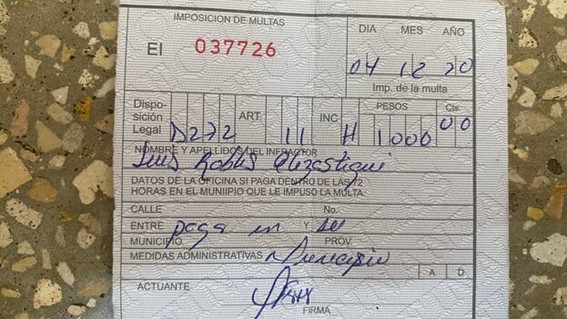 IMPOSICION DE MULTAS
DIA MES AÑO
EI 037726
04 12 20
Imp. de la multa
Dispo-
sición
Legal D272 ART. 11 INC H PESOS 1000 Cts. 00
NOMBRE Y APELLIDOS DEL INFRACTOR
Luis Robles
DATOS DE LA OFICINA SI PAGA DENTRO DE LAS 72
HORAS EN EL MUNIIPIO QUE LE IMPUSO LA MULTA.
CALLE No.
ENTRE paga en Y su
MUNICIPIO PROV.
MEDIDAS ADMINISTRATIVAS Municipio
A D
ACTUANTE
FIRMA